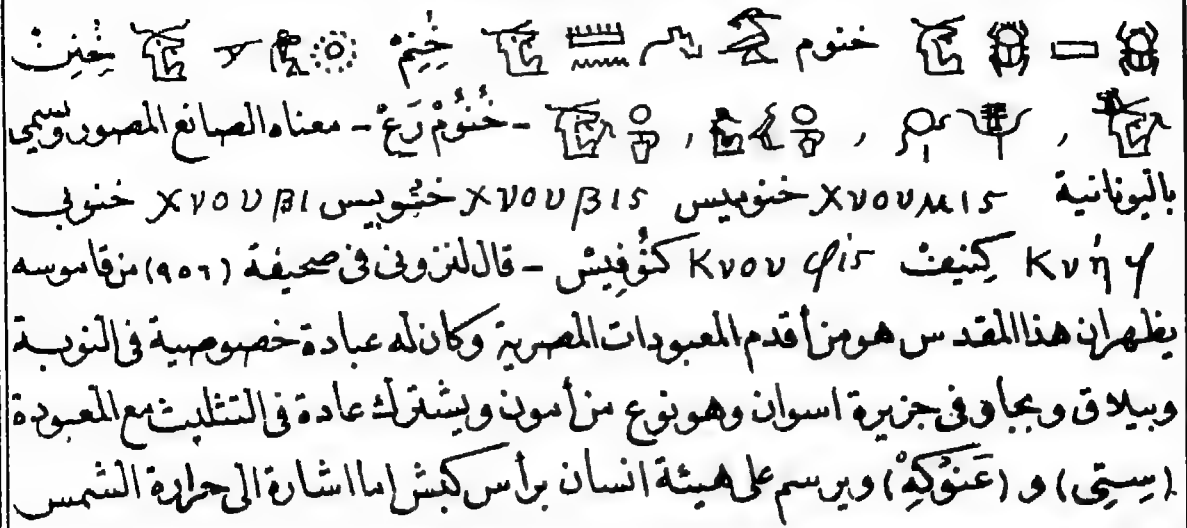 خنوم خِنِمْ خِنِتْ
, , , - خُنُومْ رَعْ - معناه الصانع المصور وسمى
باليونانية Χνουμις خنوميس Χνουβις خنوبيس Χνουβι خنوبى
Κνήφ كِنيفْ Κνουφις كنُوفِيسْ - قال لنزونى فى صحيفة (٩٥٦) من قاموسه
يظهر ان هذا المقدس هو من أقدم المعبودات المصرية وكان له عبادة خصوصية فى النوبة
وبيلاق وبجاو فى جزيرة اسوان وهو نوع من أمون ويشترك عادة فى التثليث مع المعبودة
(سِتِى) و (عَنُوكِهْ) ويرسم على هيئة انسان برأس كبش اما اشارة الى حرارة الشمس